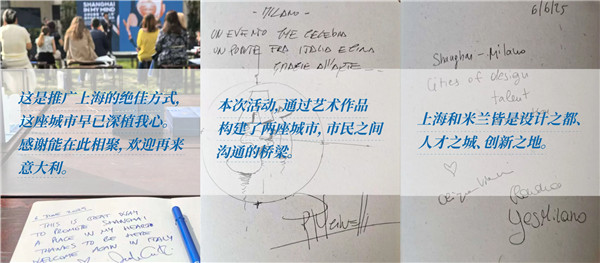 SHANGHAI
IN MY MIND
这是推广上海的绝佳方式,
这座城市早已深植我心。
感谢能在此相聚, 欢迎再来
意大利。
THIS IS GREAT WAY
TO PROMOTE SHANGHAI
A PLACE IN MY HEART
THANKS TO BE HERE
WELCOME AGAIN IN ITALY
- MILANO -
UN EVENTO CHE CELEBRA
UN PONTE FRA ITALIA E CINA
GRAZIE ALL'ARTE
本次活动,通过艺术作品
构建了两座城市, 市民之间
沟通的桥梁。
6/6/25
Shanghai - Milano
Cities of design
talent
上海和米兰皆是设计之都、
人才之城、创新之地。
YesMilano